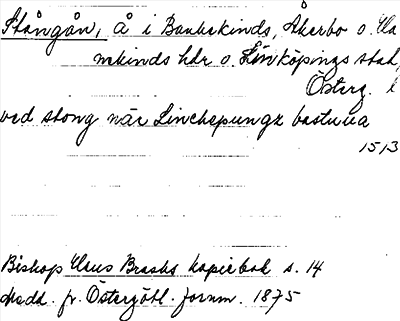 Stångån, å i Bankekinds, Åkerbo o. Ha
nekinds hdr o. Linköpings stad,
Österg. l
ved stong när Linchepungx bastuua
1513
Biskop Hans Brasks kopiebok s. 14
Medd. fr. Östergötl. fornm. 1875